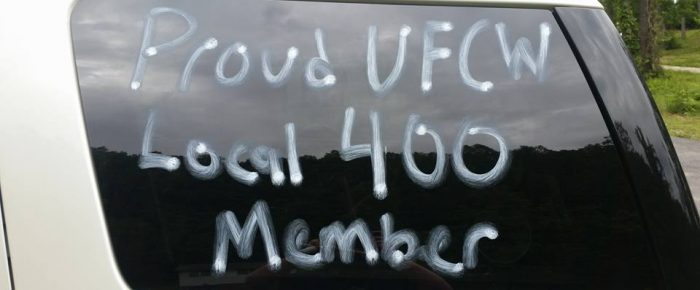 Proud UFCW
Local 400
Member